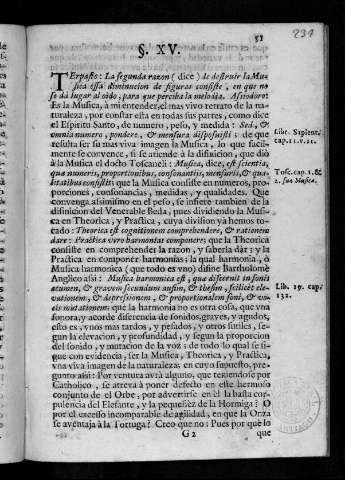 51
231
§. XV.
TErpasto: La segunda razon (dice) de destruir la Mu-
sica essa diminucion de figuras consiste, en que no
se dá lugar al oído, para que perciba la melodia. Assiodoro:
Es la Musica, à mi entender, el mas vivo retrato de la na-
turaleza, por constar esta en todas sus partes, como dice
el Espiritu Santo, de numero, peso, y medida: Sed, &
omnia numero, pondere, & mensura disposuisti: de que
resulta ser su mas viva imagen la Musica, lo que facil-
mente se convence, si se atiende à la difinicion, que diò
à la Musica el docto Toscaneli: Musica, dice, est scientia,
quæ numeris, proportionibus, consonantijs, mensuris, & qua-
litatibus consistit: que la Musica consiste en numeros, pro-
porciones, consonancias, medidas, y qualidades. Que
convenga assimismo en el peso, se infiere tambien de la
difinicion del Venerable Beda, pues dividiendo la Musi-
ca en Theorica, y Practica, cuya division yà hemos to-
cado: Theorica est cognitionem comprehendere, & rationem
dare: Practica verò harmonias componere: que la Theorica
consiste en comprehender la razon, y saberla dàr: y la
Practica en componer harmonias; la qual harmonia, ò
Musica harmonica (que todo es vno) difine Bartholomè
Anglico assi: Musica harmonica est, quæ discernit in sonis
acumen, & gravem secundum arsim, & thesim, scilicèt ele-
vationem, & depressionem, & proportionalem soni, & vo-
cis mutationem: que la harmonia no es otra cosa, que vna
sonora, y acorde diferencia de sonidos, graves, y agudos,
esto es, vnos mas tardos, y pesados, y otros sutiles, se-
gun la elevacion, y profundidad, y segun la proporcion
del sonido, y mutacion de la voz: de todo lo qual se si-
gue con evidencia, ser la Musica, Theorica, y Practica,
vna viva imagen de la naturaleza; en cuyo supuesto, pre-
gunto assi: Por ventura avrà alguno, que teniendose por
Catholico, se atreva à poner defecto en este hermoso
conjunto de el Orbe; por advertirse en èl la basta cor-
pulencia del Elefante, y la pequeñèz de la Hormiga? O
por el excesso incomparable de agilidad, en que la Onza
se aventaja à la Tortuga? Creo que no: Pues por què lo
G 2
que
Libr. Sapient.
cap. 11. v. 21.
Tosc. cap. 1. &
2. sue Musica.
Lib. 19. cap.
132.